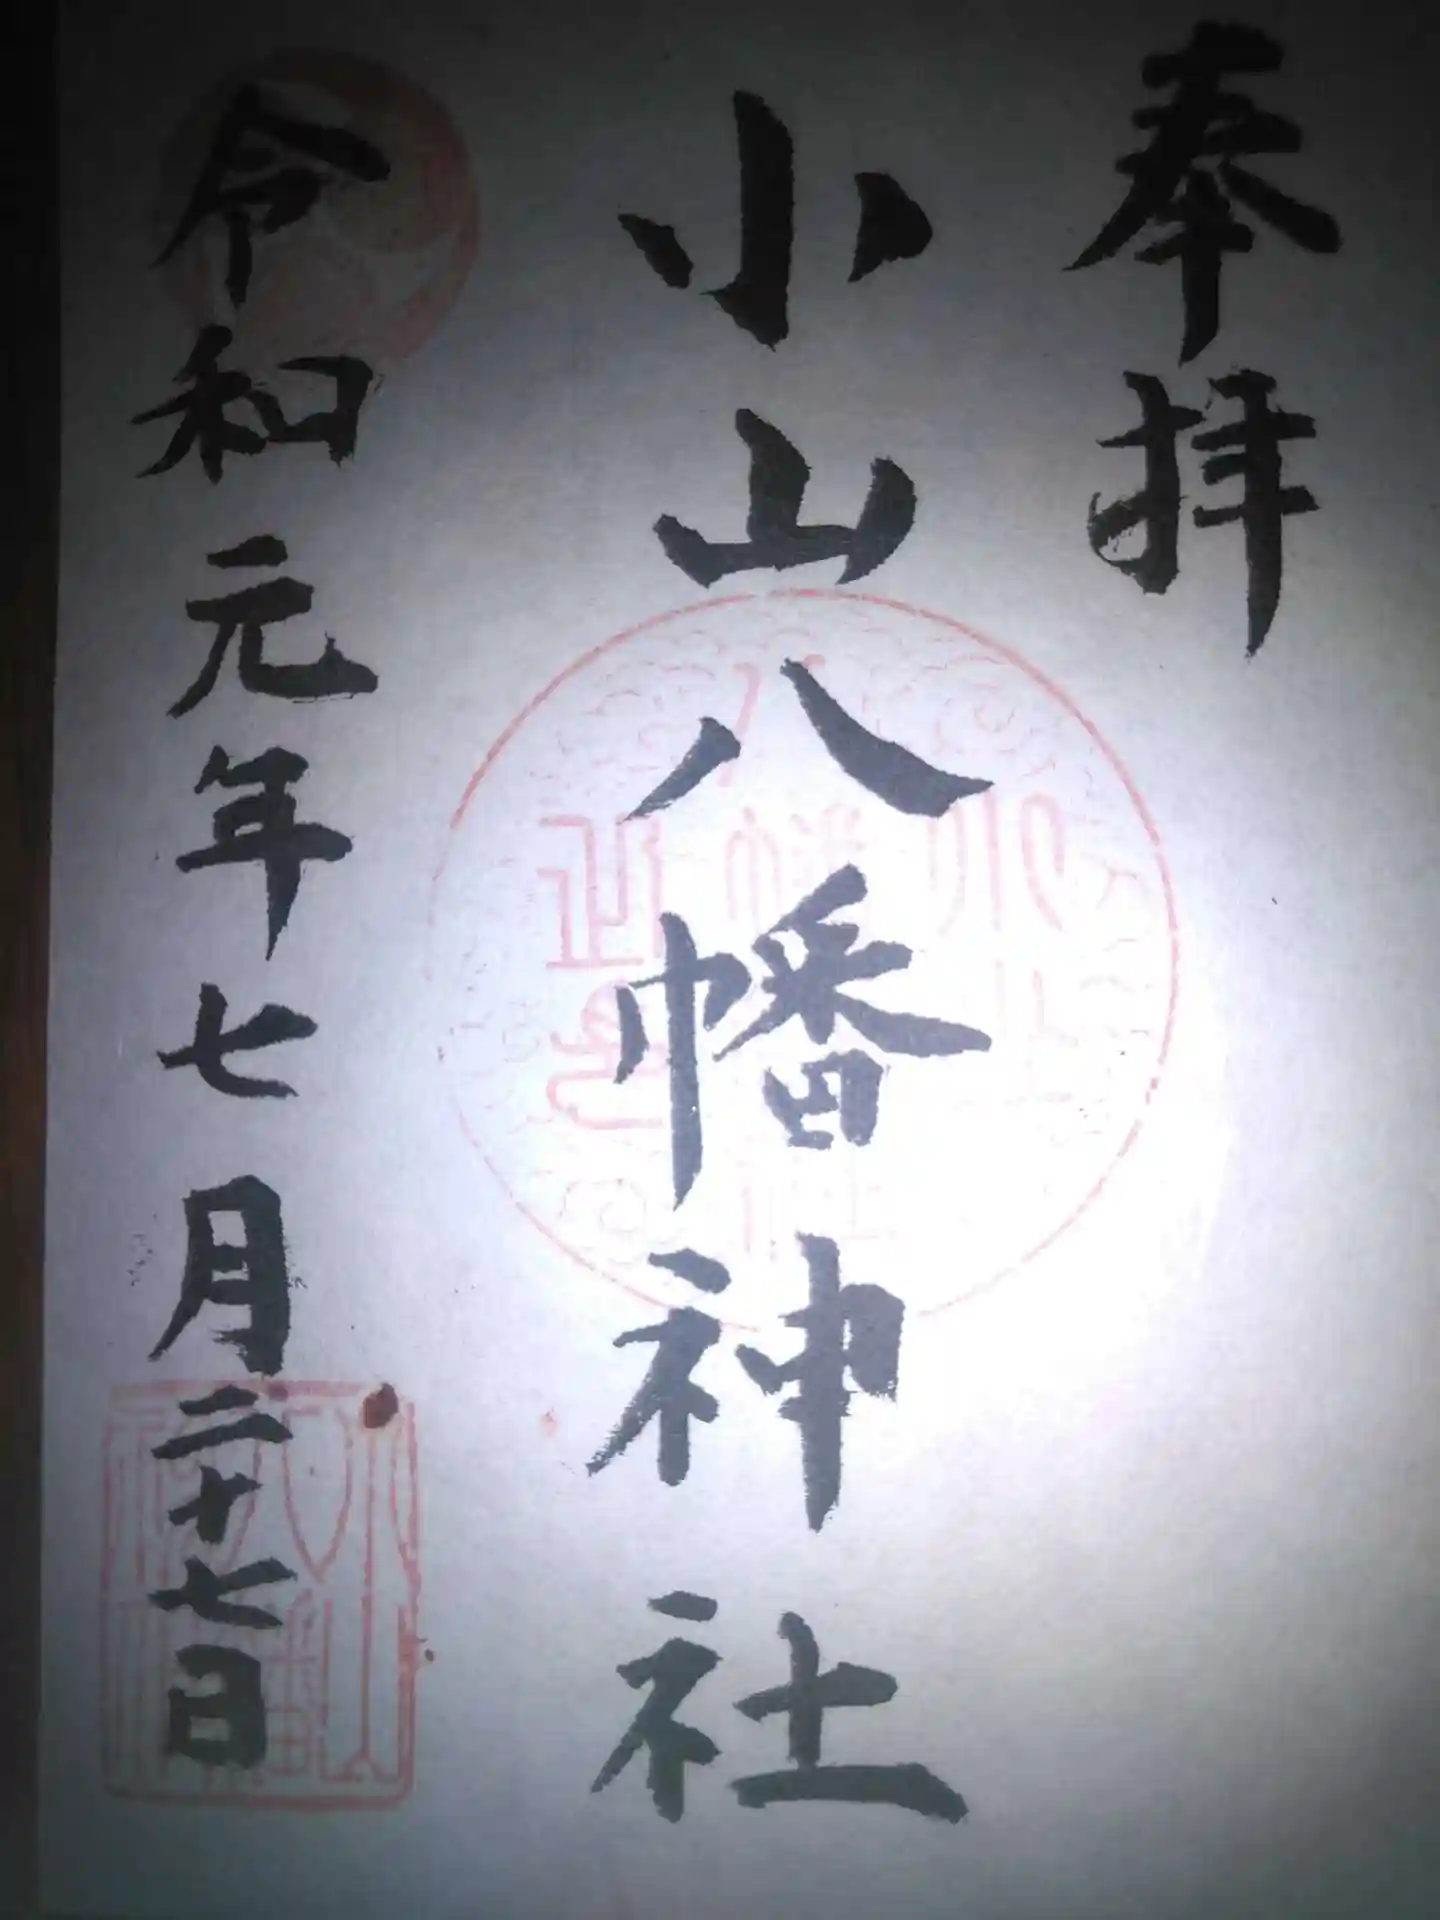 奉拝
小山八幡神社
令和元年七月二十七日